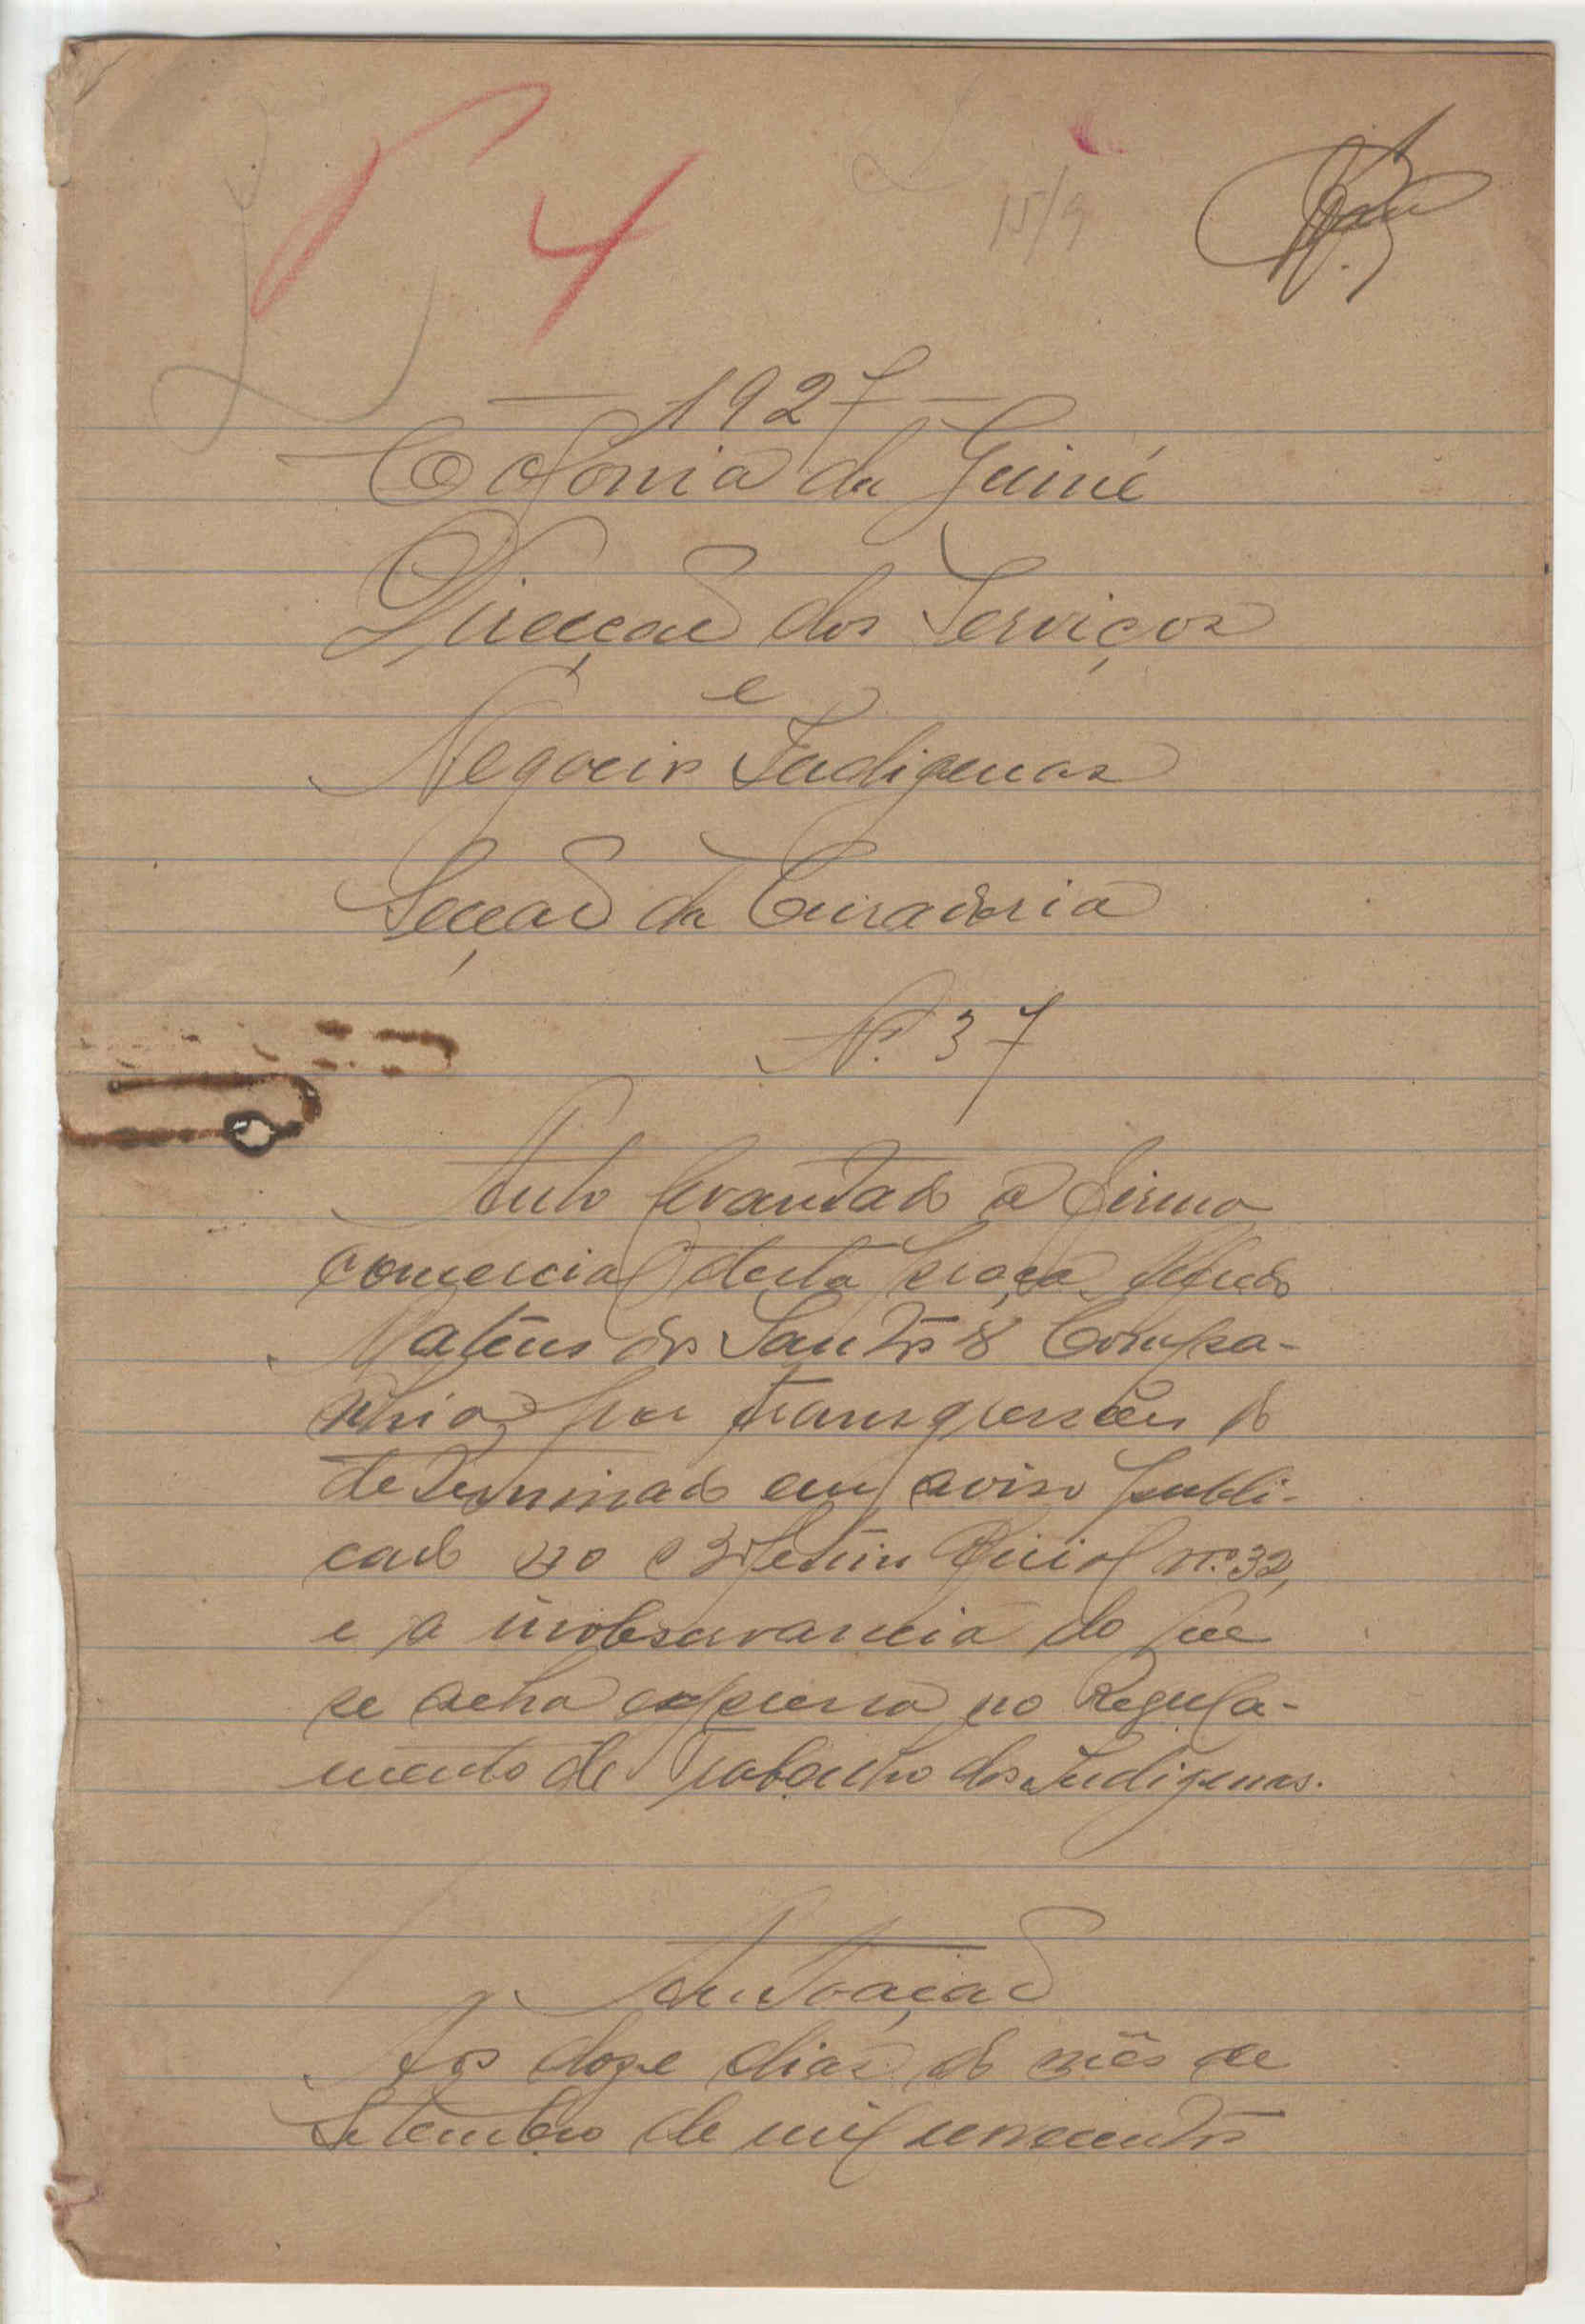 P 4
15/9
— 1927 —
Colonia da Guiné
Direcção dos Serviços
e
Negocios Indigenas
Secção da Curadoria
N.º 37
Auto levantado á firma
comercial desta praça Alfredo
Mateus dos Santos & Compa-
nhia por transgressão do
determinado em aviso publi-
cado no Boletim Oficial n.º 32,
e a inobservancia do que
se acha expresso no Regula-
mento de Trabalho dos Indigenas.
Autoação
Aos doze dias do mês de
Setembro de mil novecentos